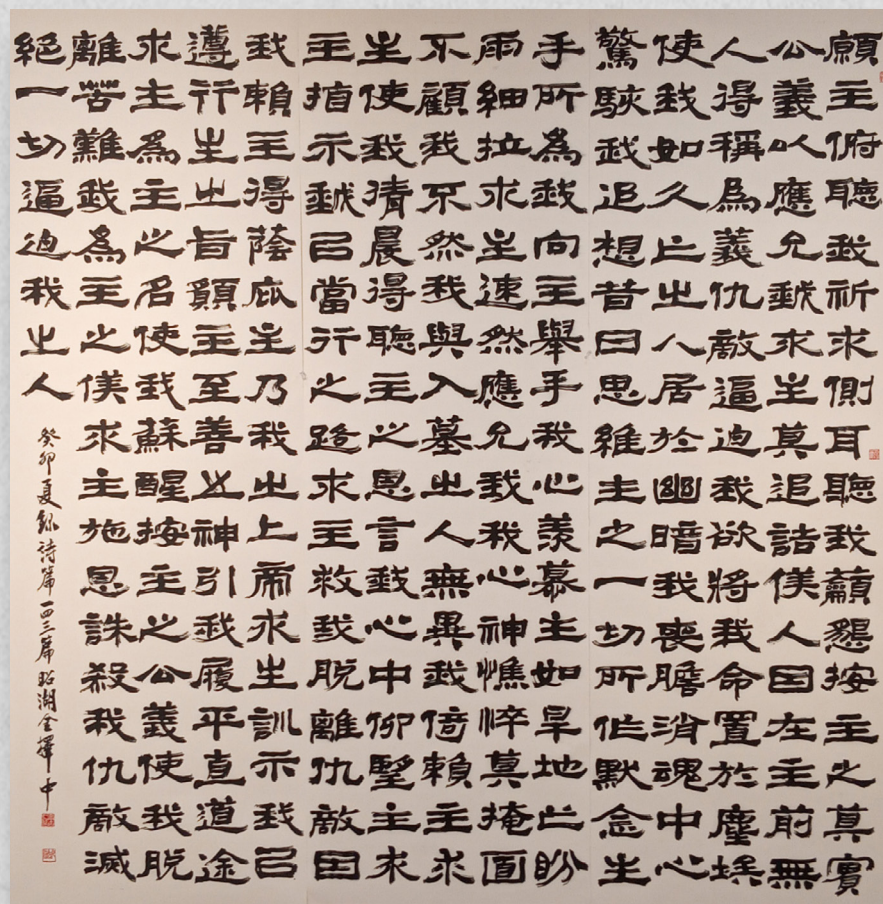 願主俯聽我祈求側耳聽我籲懇按主之真實
公義以應允我求主莫追詰僕人因在主前無
人得稱為義仇敵逼迫我欲將我命置於塵埃
使我如久亡之人居於幽暗我喪膽消魂中心
驚駭我追想昔日思維主之一切所作默念主
手所為我向主舉手我心羨慕主如旱地亡盼
雨細拉求主速然應允我我心神憔悴莫掩面
不顧我不然我與入墓之人無異我倚賴主求
主使我清晨得聽主之恩言我心中仰望主求
主指示我己當行之路求主救我脫離仇敵因
我賴主得蔭庇主乃我之上帝求主訓示我己
遵行主之旨願主至善之神引我履平直道途
求主為主之名使我蘇醒按主之公義使我脫
離苦難我為主之僕求主施恩誅殺我仇敵滅
絕一切逼迫我之人
癸卯夏錄詩篇一四三篇昭湖金擇中